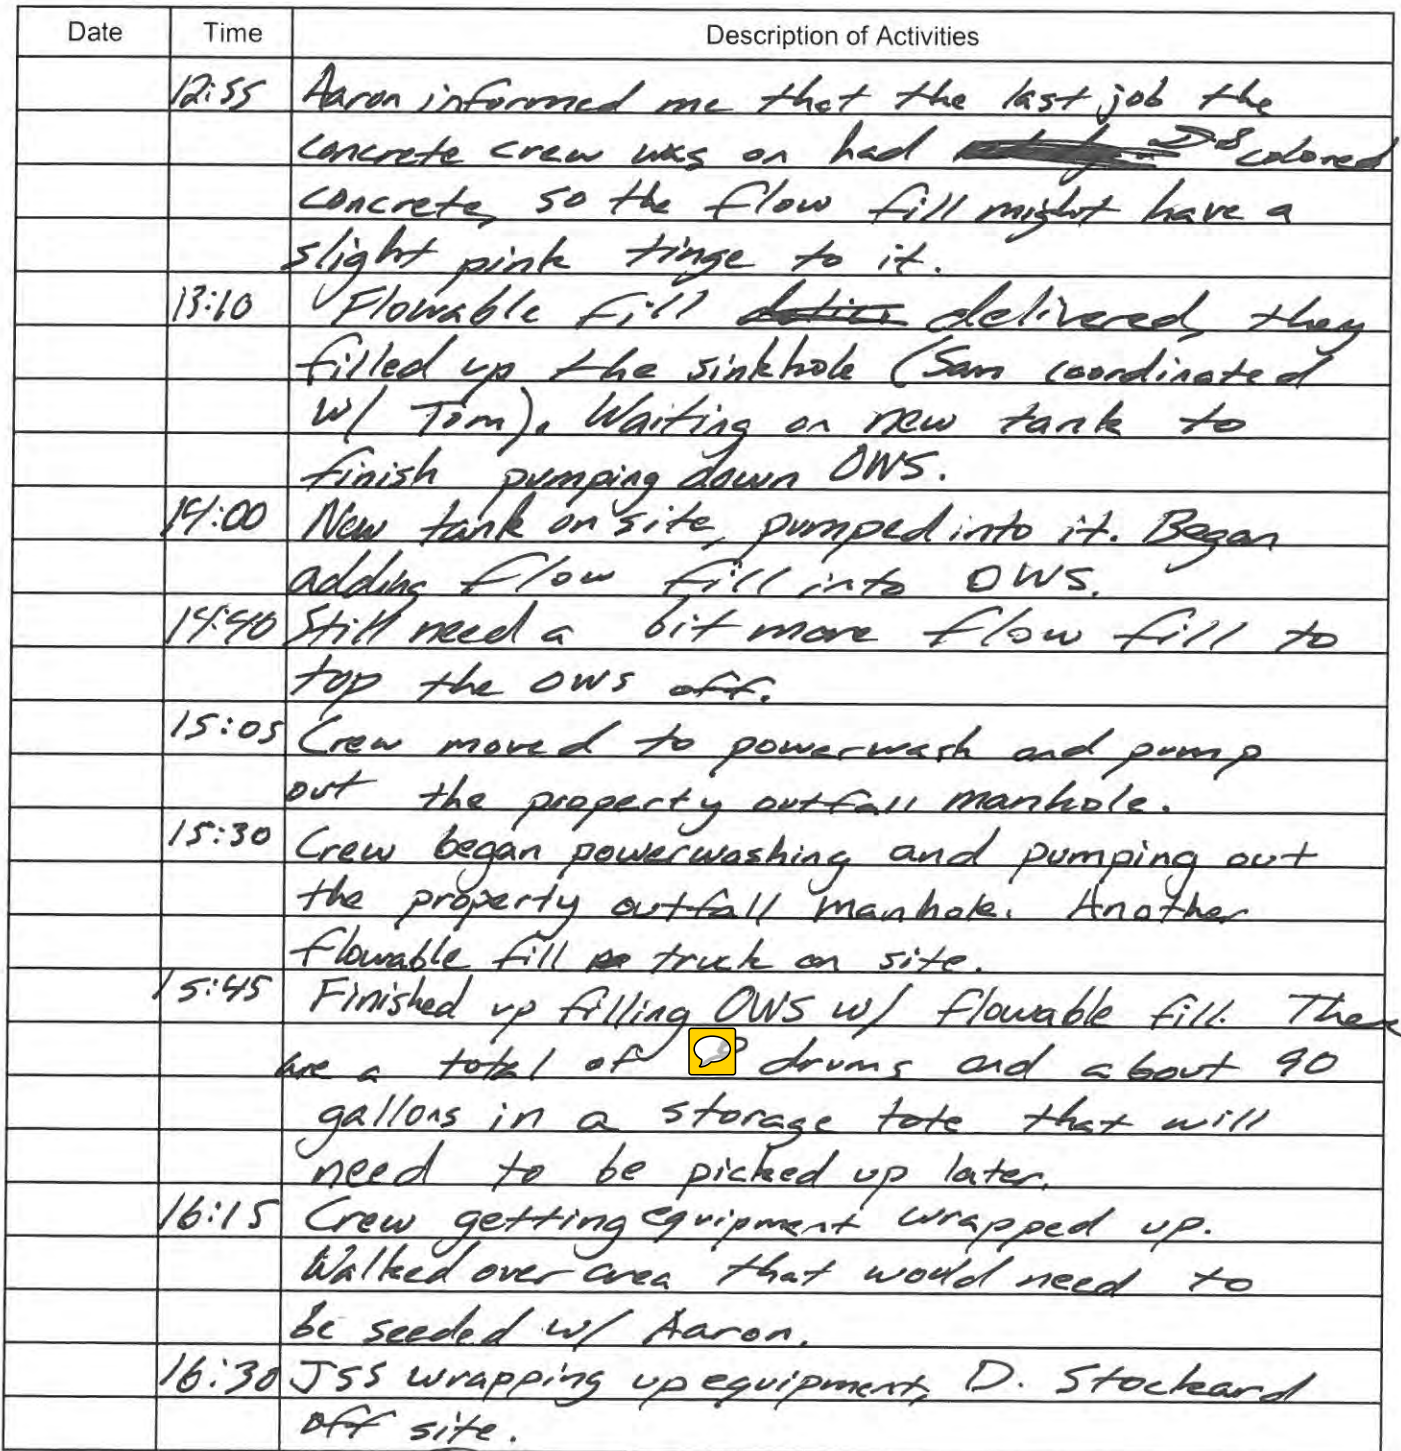 Date Time Description of Activities
12:55 Aaron informed me that the last job the
concrete crew was on had DS colored
concrete, so the flow fill might have a
slight pink tinge to it.
13:10 Flowable fill delivered, they
filled up the sinkhole (Sam coordinated
w/ Tom). Waiting on new tank to
finish pumping down OWS.
14:00 New tank on site, pumped into it. Began
adding flow fill into OWS.
14:40 Still need a bit more flow fill to
top the OWS off.
15:05 Crew moved to powerwash and pump
out the property outfall manhole.
15:30 Crew began powerwashing and pumping out
the property outfall manhole. Another
flowable fill truck on site.
15:45 Finished up filling OWS w/ flowable fill. There
are a total of drums and about 90
gallons in a storage tote that will
need to be picked up later.
16:15 Crew getting equipment wrapped up.
Walked over area that would need to
be seeded w/ Aaron.
16:30 JSS wrapping up equipment, D. Stockard
off site.